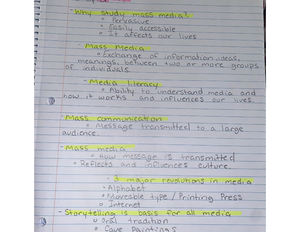 - Why study mass media?
Pervasive
Easily accessible
It affects our lives
- Mass Media
Exchange of information, ideas,
meanings, between two or more groups
of individuals.
- Media literacy
Ability to understand media and
how it works and influences our lives.
Mass communication
Message transmitted to a large
audience.
- Mass media
How message is transmitted
Reflects and influences culture.
- 3 major revolutions in media
Alphabet
Moveable type / Printing Press
Internet
- Storytelling is basis for all media
Oral tradition
Cave Paintings